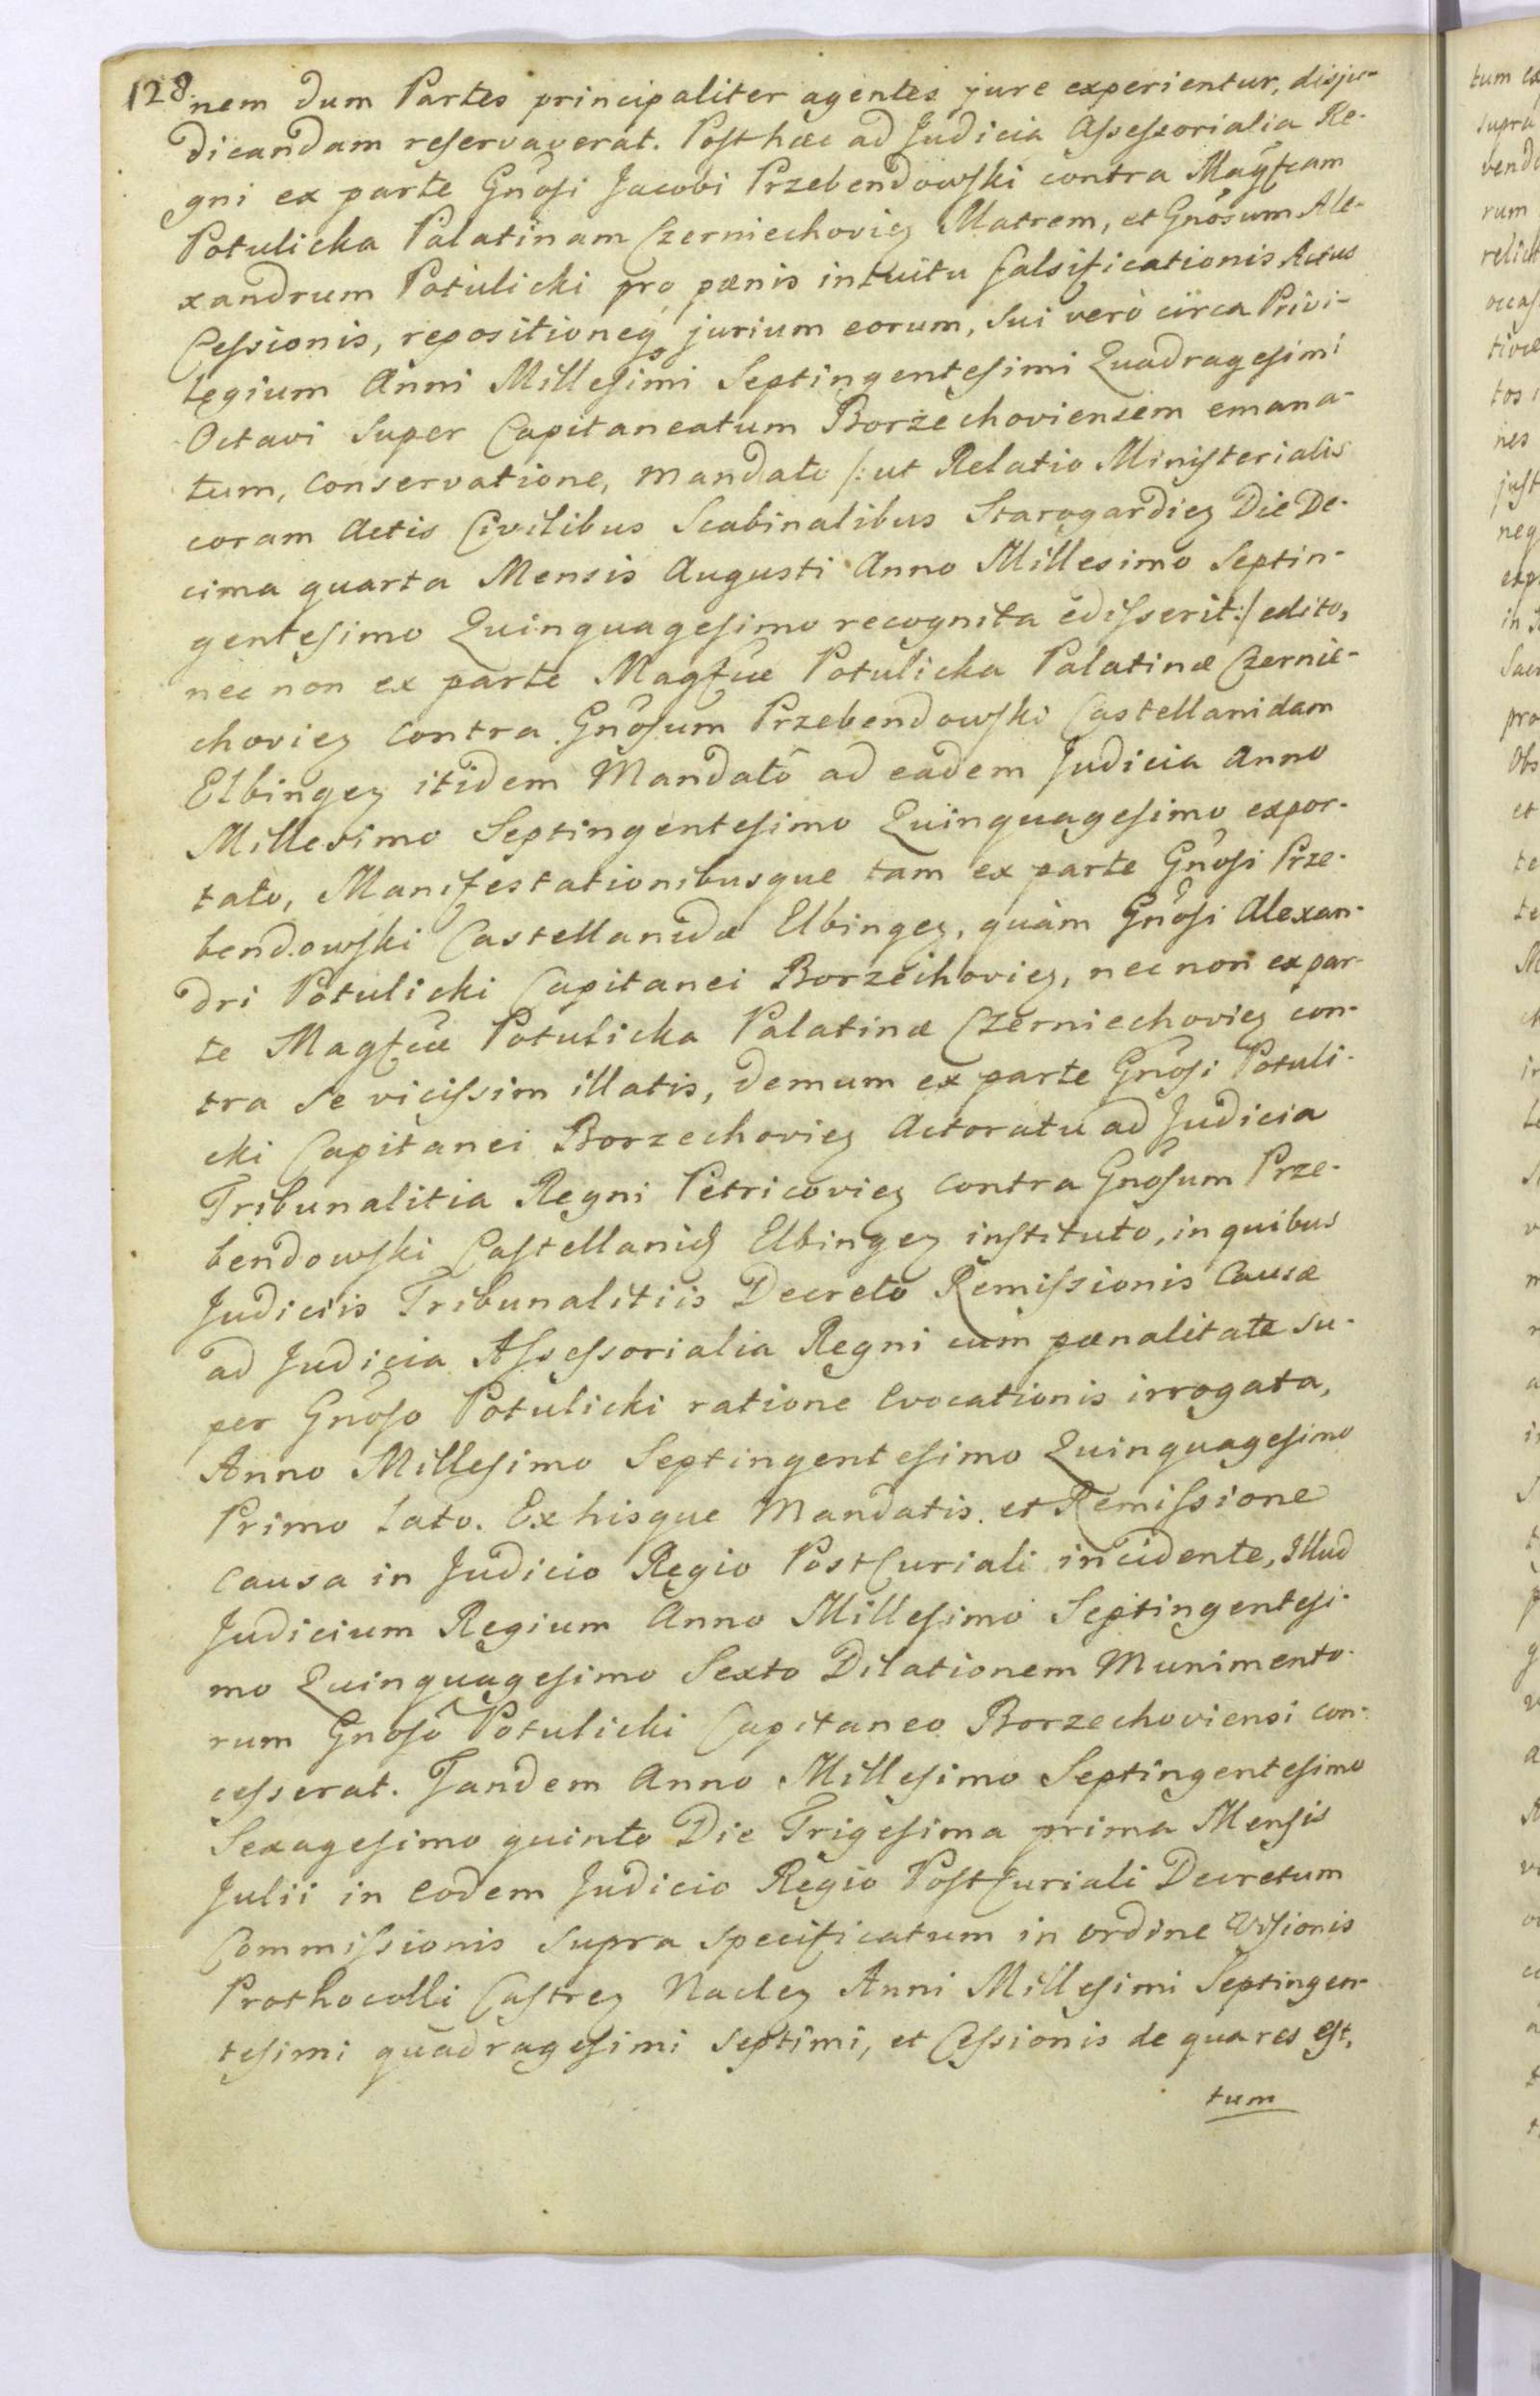 128. nem dum Partes principaliter agentes jure experientur, disju-
dicandam reservaverat. Posthæc ad Judicia Assessorialia Re-
gni ex parte Gnosi Jacobi Przebendowski contra Magfcam
Potulicka Palatinam Czerniechovieȝ Matrem, et Gnosum Ale-
xandrum Potulicki pro pænis intuitu falsificationis Actus
Cessionis, repositioneq jurium eorum, sui verò circa Privi-
legium Anni Millesimi Septingentesimi Quadragesimi
Octavi super Capitaneatum Borzechoviensem emana-
tum, conservatione, mandato /: ut Relatio Ministerialis
coram Actis Civilibus Scabinalibus Starogardieȝ Die De-
cima quarta Mensis Augusti Anno Millesimo Septin-
gentesimo Quinquagesimo recognita edisserit :/ edito,
nec non ex parte Magfcæ Potulicka Palatinæ Czernie-
chovieȝ contra Gnosum Przebendowski Castellanidam
Elbingeȝ itidem Mandatô ad eadem Judicia Anno
Millesimo Septingentesimo Quinquagesimo expor-
tato, Manifestationibusque tam ex parte Gnosi Prze-
bendowski Castellanidæ Elbingeȝ, quàm Gnosi Alexan-
dri Potulicki Capitanei Borzechovieȝ, nec non ex par-
te Magfcæ Potulicka Palatinæ Czerniechovieȝ con-
tra se vicissim illatis, demum ex parte Gnosi Potuli-
cki Capitanei Borzechovieȝ Actoratu ad Judicia
Tribunalitia Regni Petricovieȝ contra Gnosum Prze-
bendowski Castellanid Elbingeȝ instituto, in quibus
Judiciis Tribunalitiis Decreto Remissionis Causæ
ad Judicia Assessorialia Regni cum pænalitate su-
per Gnoso Potulicki ratione Evocationis irrogata,
Anno Millesimo Septingentesimo Quinquagesimo
Primo lato. Ex hisque Mandatis et Remissione
Causa in Judicio Regio PostCuriali incidente, Illud
Judicium Regium Anno Millesimo Septingentesi-
mo Quinquagesimo Sexto Dilationem Munimento-
rum Gnosô Potulicki Capitaneo Borzechoviensi con-
cesserat. Tandem Anno Millesimo Septingentesimo
Sexagesimo quinto Die Trigesima prima Mensis
Julii in eodem Judicio Regio PostCuriali Decretum
Commissionis supra specificatum in ordine Visionis
Prothocolli Castreȝ Nacleȝ Anni Millesimi Septingen-
tesimi quadragesimi septimi, et Cessionis de qua res est,
tum
tum
supra
rum
relict
tos
nes
in
pro
Obs
et
te
te